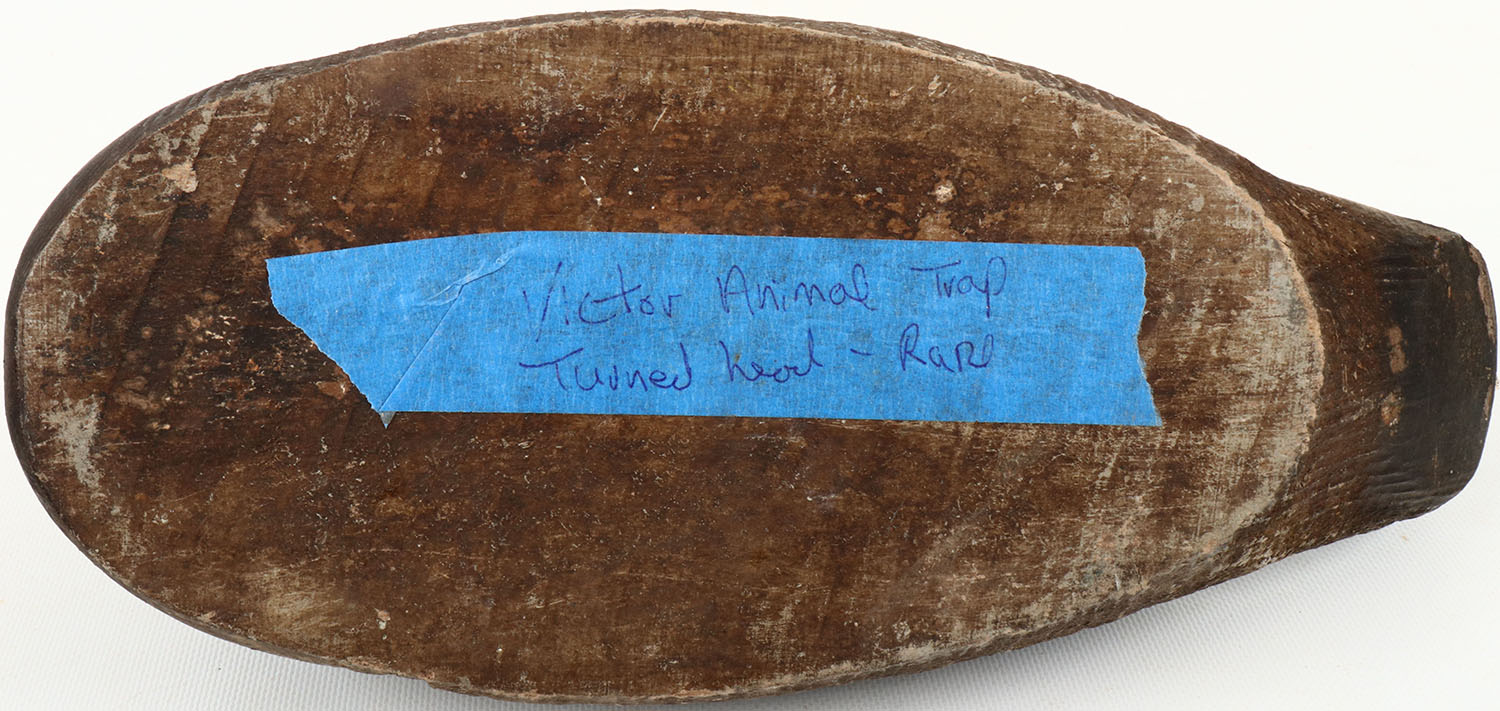 Victor Animal Trap
Turned head - Rare